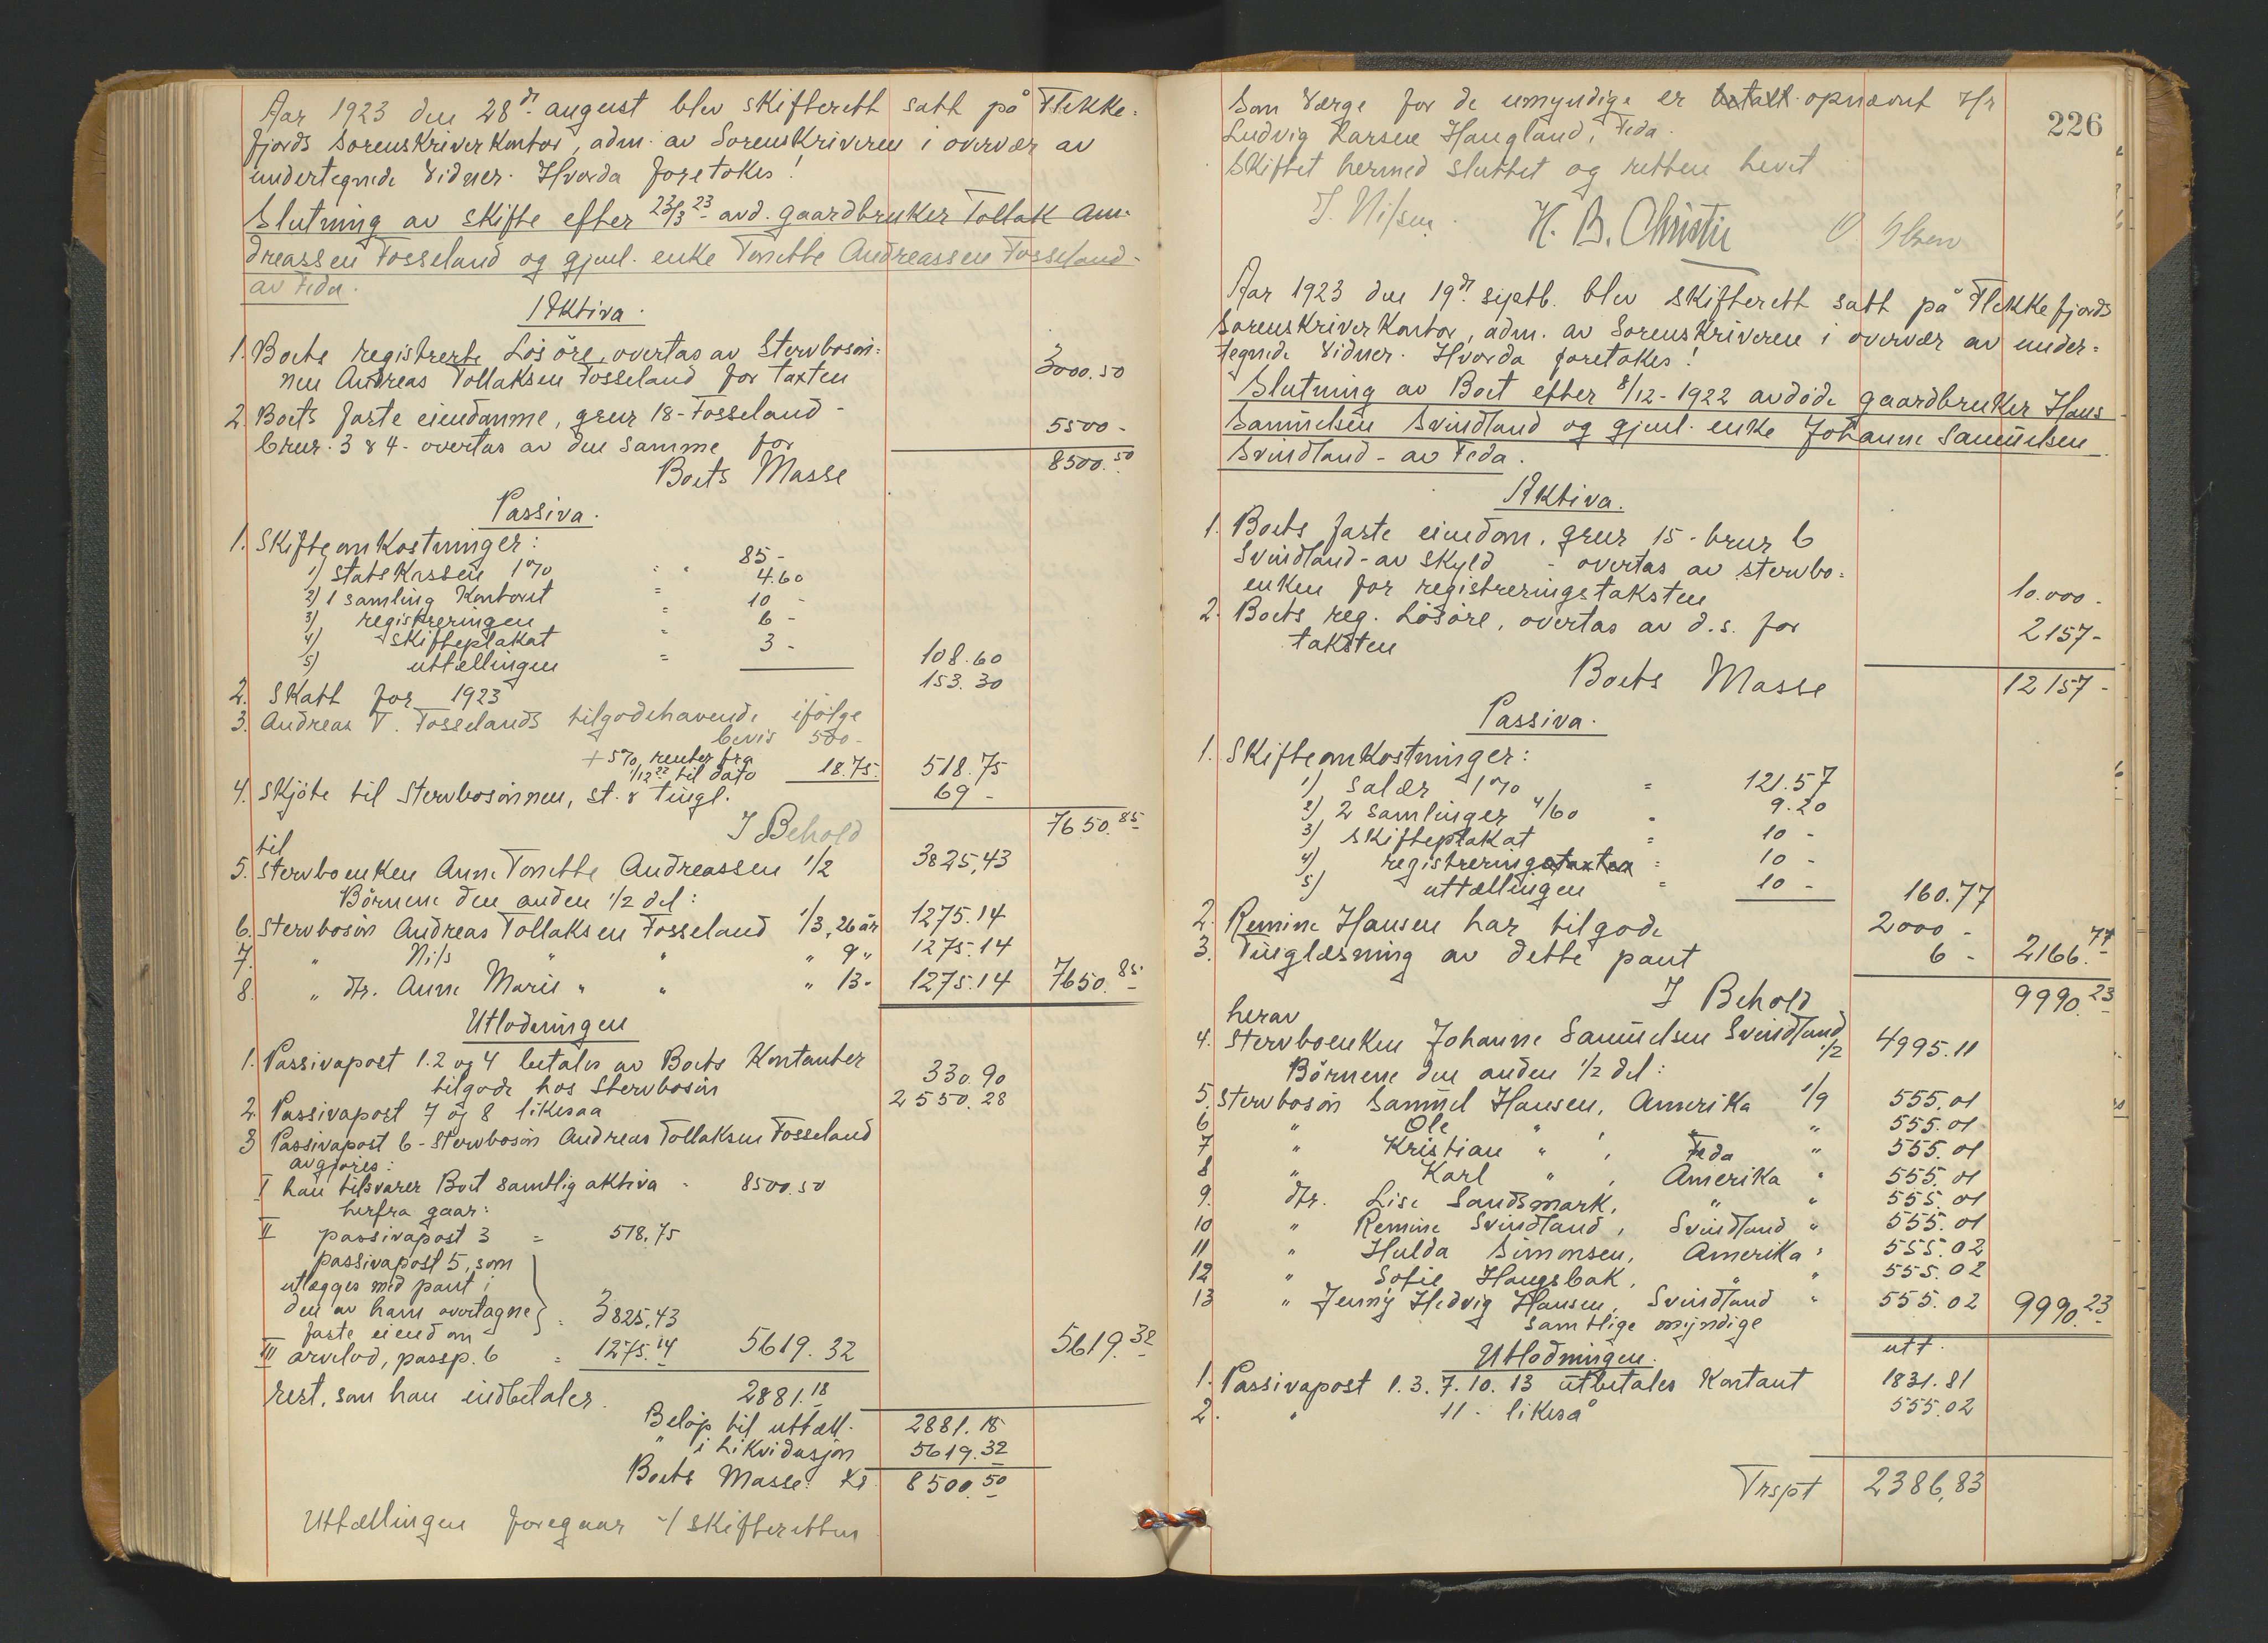 Aar 1923 den 28de august blev skifterett satt på Flekke-
fjords Sorenskriverkontor, adm. av Sorenskriveren i overvær av
undertegnede Vidner. Hvorda foretokes!
Slutning av skifte efter 23/3 23 avd. gaardbruker Tollak An-
dreassen Fosseland og gjenl. enke Tonette Andreassen Fosseland -
av Feda.
Aktiva.
1. Boets registrerte Lösöre, overtas av Stervbosön-
nen Andreas Tollaksen Fosseland for taxten 3000.50
2. Boets faste eiendomme, grnr 18 - Fosseland -
brnr. 3 & 4 - overtas av den samme for 5500 -
Boets Masse 8500.50
Passiva.
1. Skifteomkostninger:
1) Statskassen 1% " " 85 -
2) 1 samling Kontort = 4.60
3) registreringen = 10 -
4) skifteplakat " 6 -
5) uttællingen = 3 - 108.60
2. Skatt for 1923 153.30
3. Andreas T. Fosselands tilgodehavende ifölge
bevis 500 -
+ 5% renter fra
1/12 22 til dato 18.75. 518.75
4. Skjöte til Stervbosönnen, st. & tingl. 69 -
I Behold 7650.85
til
5. Stervboenken Anne Tonette Andreassen 1/2 3825,43
Börnene den anden 1/2 del:
6. Stervbosön Andreas Tollaksen Fosseland 1/3, 26 år 1275.14
7. " Nils " " " 9 " 1275.14
8. " dtr. Anne Marie " " " 13 " 1275.14 7650.85
Utlodningen
1. Passivapost 1.2 og 4 betales av Boets Kontanter
tilgode hos Stervbosön 330.90
2. Passivapost 7 og 8 likesaa 2550.28
3 Passivapost 6 - Stervbosön Andreas Tollaksen Fosseland
avgjöres:
I han tilsvarer Boet samtlig aktiva - 8500.50
herfra gaar:
II passivapost 3 = 518,75
passivapost 5, som
utlægges med pant i
den av ham overtagne
faste eiendom = 3825,43
III arvelod, passp. 6 = 1275.14 5619.32 5619.32
rest, som han indbetaler. 2881.18
Belöp til uttæll. 2881.18
" i Likvidasjon 5619.32
Boets Masse: Kr 8500.50
Uttællingen foregaar v/ skifteretten
226
Som Værge for de umyndige er betalt opnævnt Hr
Ludvig Larsen Haugland, Feda.
Skiftet hermed sluttet og retten hevet
J. Nilsen. H. B. Christie O Olsen
Aar 1923 den 19de septb. blev Skifterett satt på Flekkefjords
Sorenskriverkontor, adm. av Sorenskriveren i overvær av under-
tegnede Vidner. Hvorda foretokes!
Slutning av Boet efter 8/12 - 1922 avdöde gaardbruker Hans
Samuelsen Svindland og gjenl. enke Johanne Samuelsen
Svindland - av Feda.
Aktiva.
1. Boets faste eiendom, grnr 15 - brnr 6
Svindland - av skyld - overtas av stervbo-
enken for registreringstaksten 10.000 -
2. Boets reg. Lösöre, overtas av d.s. for
taksten 2157 -
Boets Masse 12157 -
Passiva.
1. Skifteomkostninger:
1) Salær 1% = 121.57
2) 2 samlinger 4/60 " 9.20
3) Skifteplakat = 10 -
4) registreringstaxten = 10 -
5) uttællingen = 10 - 160.77
2. Remine Hansen har tilgode 2000 -
3. Tinglæsning av dette pant 6 - 2166.77
I Behold 9990.23
herav
4. Stervboenken Johanne Samuelsen Svindland 1/2 4995.11
Börnene den anden 1/2 del:
5. Stervbosön Samuel Hansen, Amerika 1/9 555.01
6 " Ole " , " " 555.01
7 " Kristian " , Feda " 555.01
8 " Karl " , Amerika " 555.01
9. dtr. Lise Sandsmark, " " 555.01
10 " Remine Svindland, Svindland " 555.01
11 " Hulda Simonsen, Amerika " 555.02
12 " Sofie Haugsbak, " " 555.02
13 " Jenny Hedvig Hansen, Svindland " 555.02 9990.23
samtlige myndige
Utlodningen. utt.
1. Passivapost 1.3.7.10.13 utbetales Kontant 1831.81
2. " 11 - likeså 555.02
Trspt 2386,83